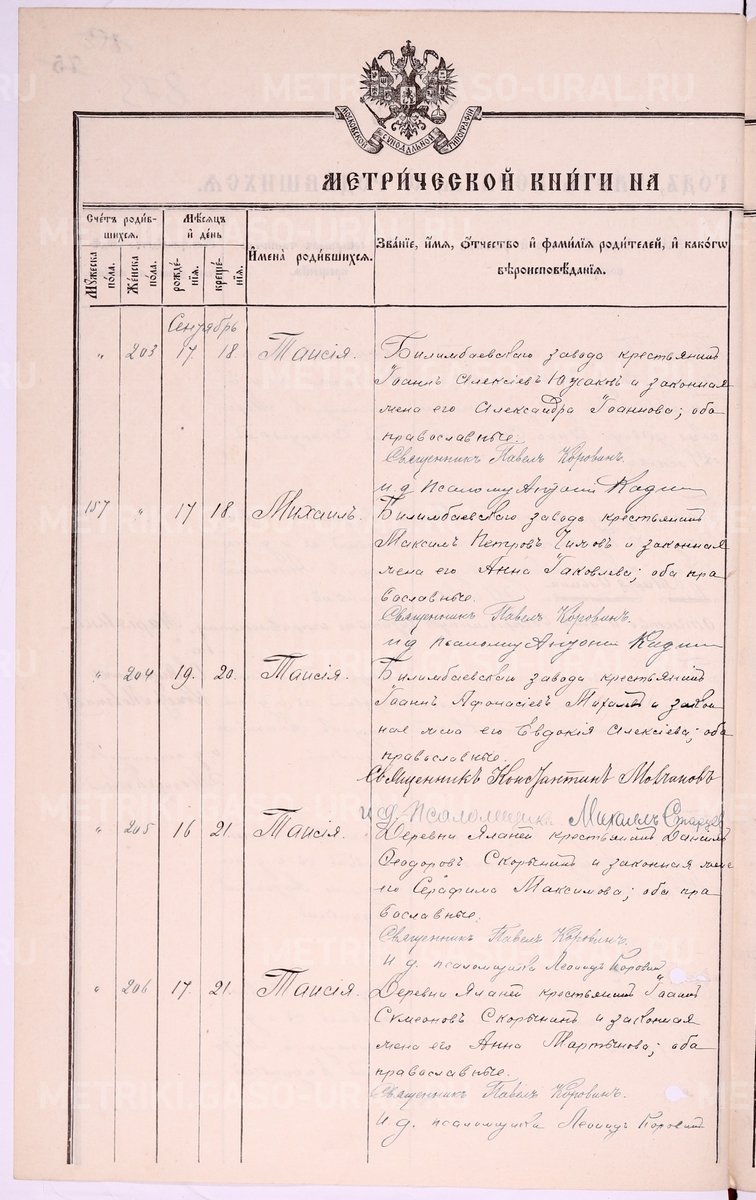 МОСКОВСКОЙ СУНОДАЛЬНОЙ ТИПОГРАФІИ
МЕТРИ́ЧЕСКОЙ КНИ́ГИ НА
Счéтъ роди́в-
шихся.
Мꙋ́жеска пóла.
Жéнска пóла.
Мѣ́сяцъ и҆ дéнь
рождé-
нїя.
крещé-
нїя.
И҆менà роди́вшихся.
Звáнїе, и҆́мя, ѻ҆́тчество и҆ фами́лїя роди́телей, и҆ какóгѡ
вѣроисповѣ́данїя.
Сентябрь
" 203 17 18 Таисія. Билимбаевскаго завода крестьянинъ
Іоаннъ Алексіевъ Южаковъ и законная
жена его Александра Іоаннова; оба
православные.
Священникъ Павелъ Коровинъ.
И д псалому Антоній
157 " 17 18 Михаилъ. Билимбаевскаго завода крестьянинъ
Максимъ Петровъ и законная
жена его Анна Іаковлева; оба пра
вославные.
Священникъ Павелъ Коровинъ.
И д псалому Антоній
" 204 19. 20. Таисія. Билимбаевскаго завода крестьянинъ
Іоаннъ Афонасіевъ и закон
ная жена его Евдокія Алексіева; оба
православные.
Священникъ Константинъ Молчановъ
И д. Псаломщика Михаилъ
" 205 16 21. Таисія. Деревни Яланей крестьянинъ Даніилъ
Ѳеодоровъ Скорынинъ и законная жена
его Серафима Максимова; оба пра
вославные.
Священникъ Павелъ Коровинъ.
И д. псаломщика Леонидъ Коровинъ
" 206 17. 21. Таисія. Деревни Яланей крестьянинъ Іоаннъ
Сумеоновъ Скорынинъ и законная
жена его Анна Мартынова; оба
православные.
Священникъ Павелъ Коровинъ.
И д. псаломщика Леонидъ Коровинъ
METRIKI.GASO-URAL.RU